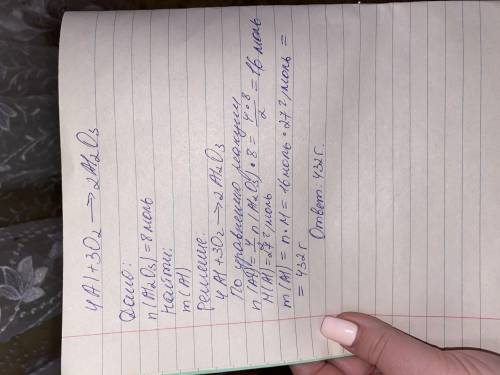 4Al+3O₂ → 2Al₂O₃
Дано:
n(Al₂O₃)=8моль
Найти:
m(Al)
Решение:
4Al+3O₂→2Al₂O₃
По уравнению реакции
n(Al)=4/2 n(Al₂O₃)•8= 4•8/2 =16моль
M(Al)=27г/моль
m(Al)= n•M=16моль•27г/моль=
=432г
Ответ: 432г.